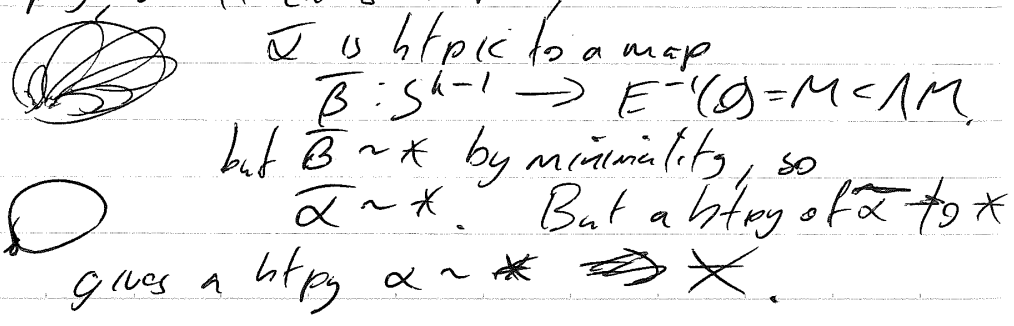 ᾱ is htpic to a map
β̄ : S^{k-1} → E^{-1}(0) = M ⊂ ΛM.
but β̄ ~ * by minimality, so
ᾱ ~ *. But a htpy of ᾱ to *
gives a htpy α ~ *